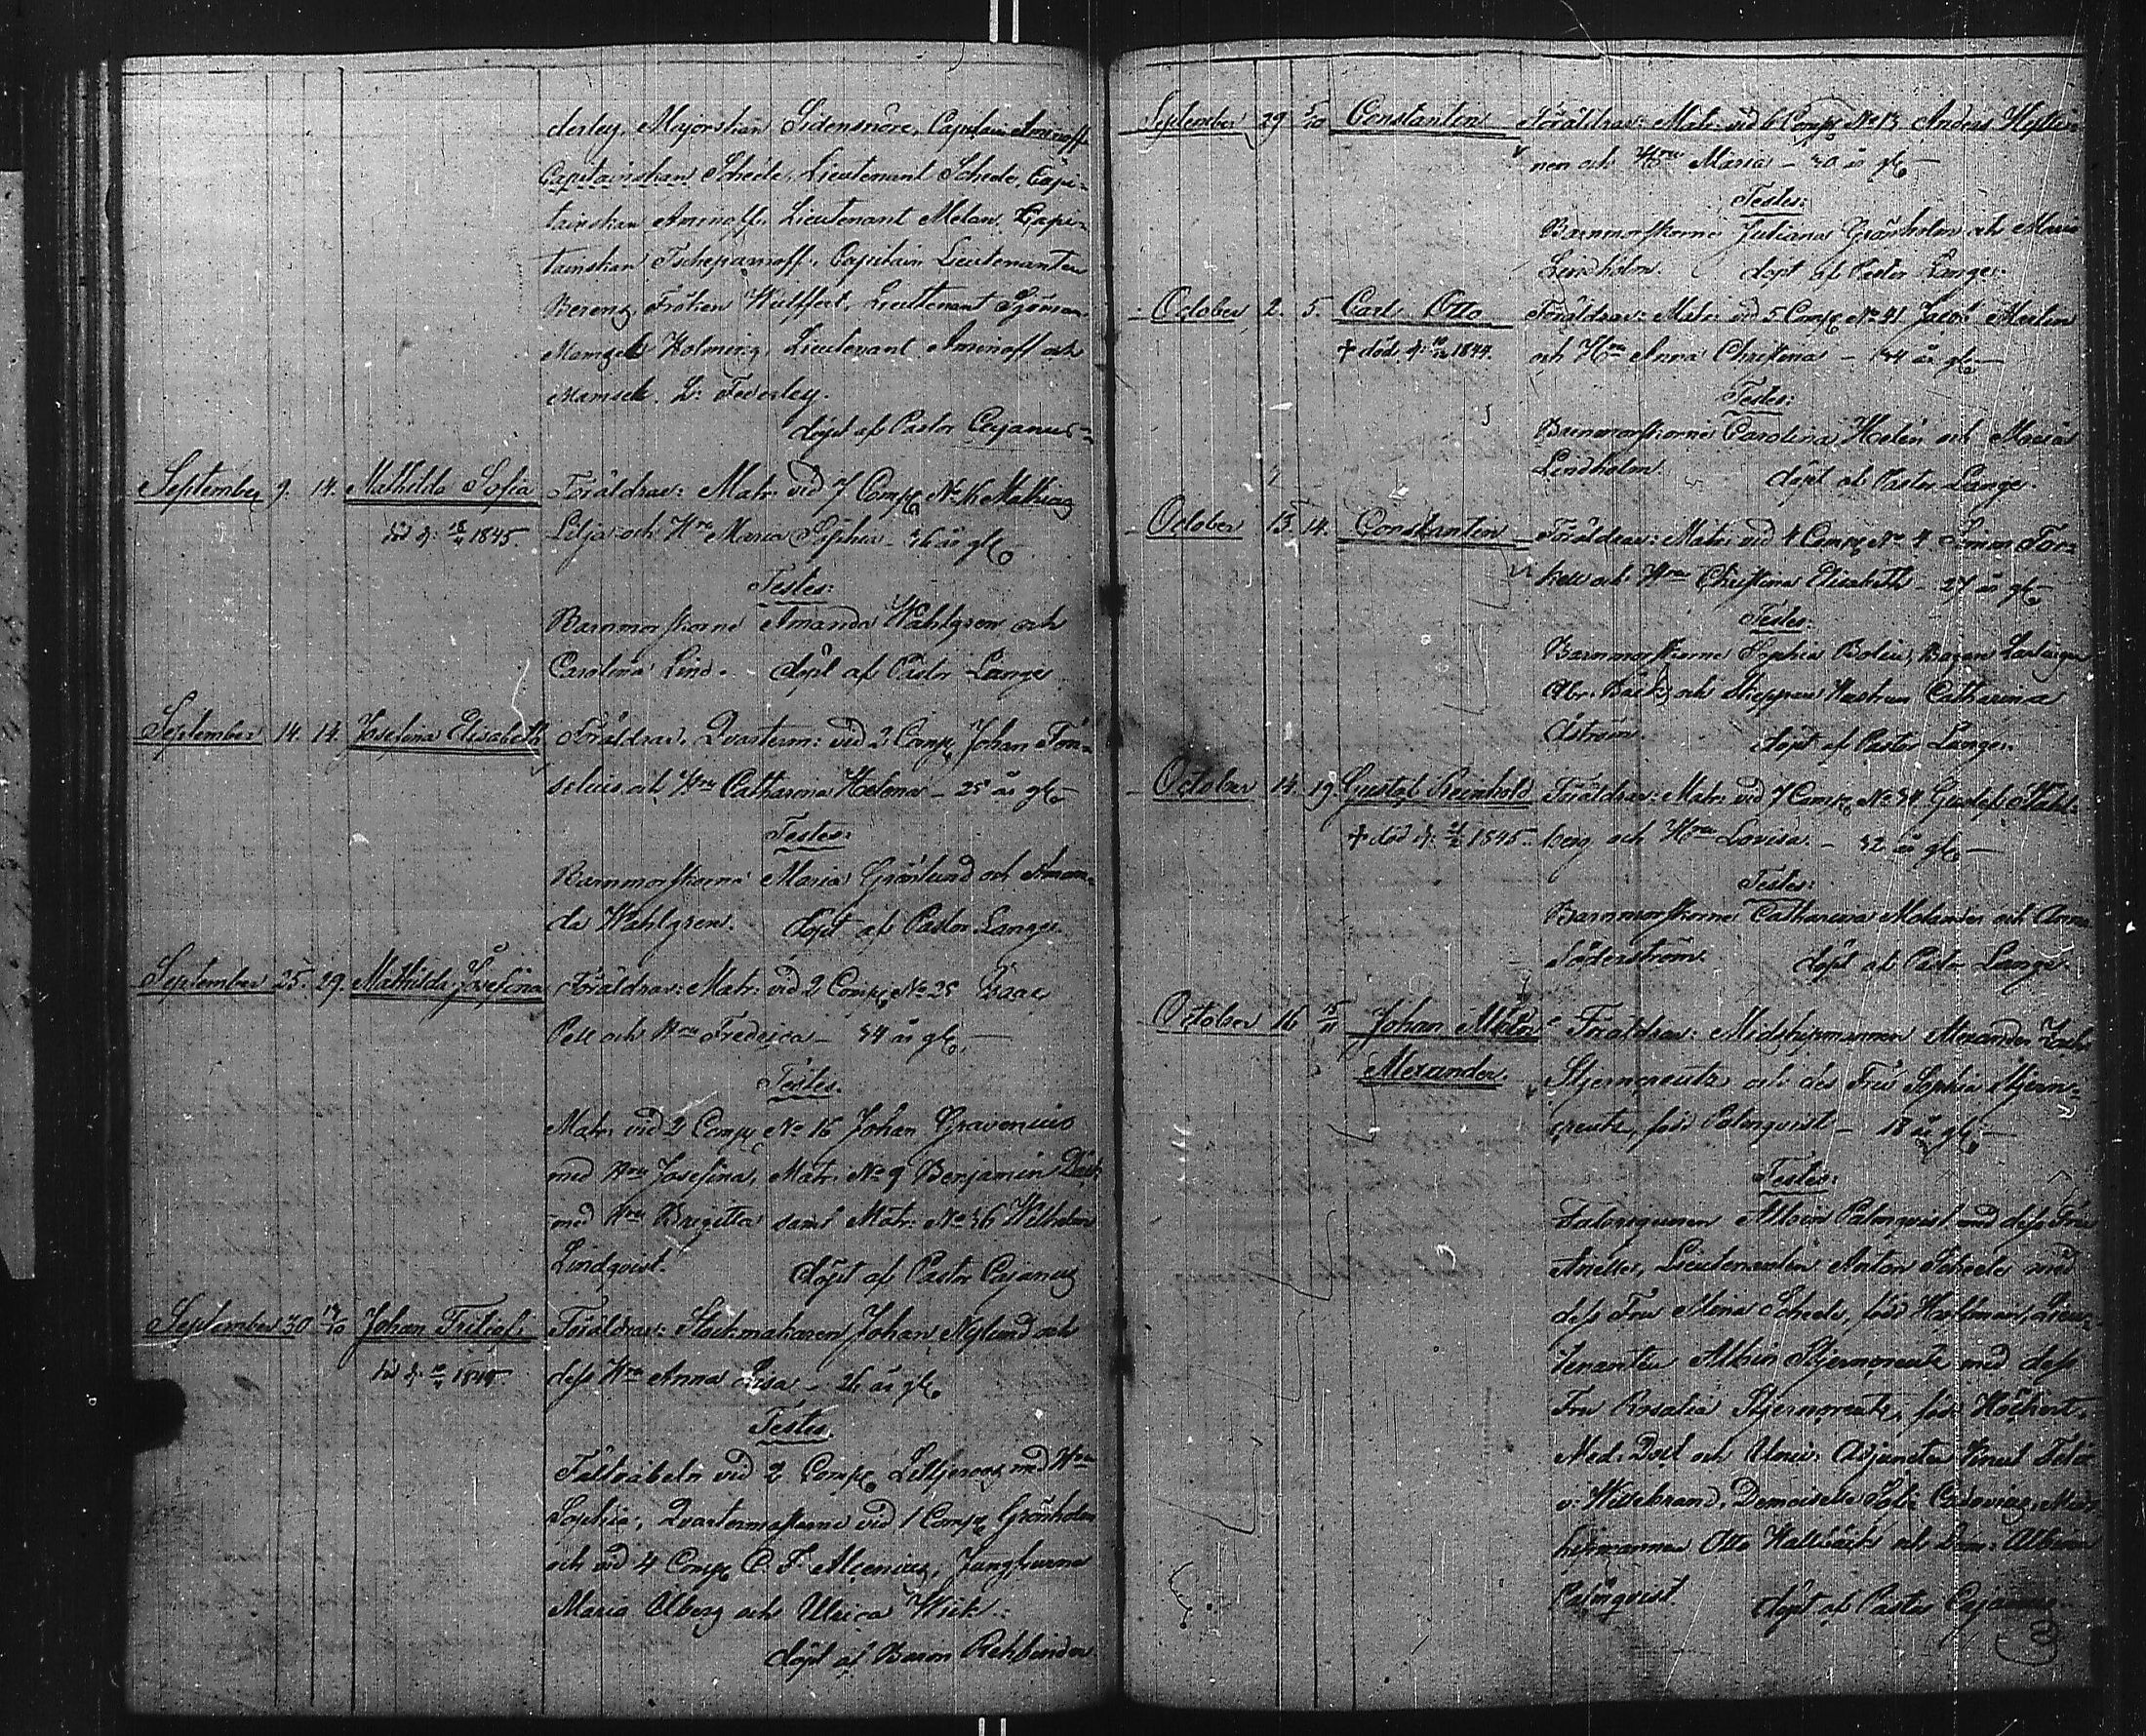 derley, Majorskan Sidensnöre, Capitain Aminoff
Capitainskan Scheele, Lieutenant Scheele, Capi-
tainskan Aminoff, Lieutenant Melan, Capi-
tainskan Tschepanoff, Capitain Lieutenanten
Fröken Wulffert, Lieutenant
Mamsell Holming, Lieutenant Aminoff och
Mamsell L: Federley.
döpt af Pastor Cajanus
September 9. 14. Mathilda Sofia Föräldrar: Matr. vid 7 Comp. No 16 Mathias
död d: 1845. Lilja och Hru Maria Sophia - 36 år gl.
Testes:
Barnmorskorne Amanda Wahlgren och
Carolina Lind. döpt af Pastor Lange
September 14. 14. Josefina Elisabeth Föräldrar. Quarterm: vid 2 Comp. Johan For-
selius och Hru Catharina Helena - 25 år gl.
Testes:
Barnmorskorna Maria Grönlund och Aman-
da Wahlgren. döpt af Pastor Lange
September 25. 29. Mathilda Josefina Föräldrar: Matr: vid 2 Comp. No 25 Isaac
och Hru Fredrica - 34 år gl.
Testes.
Matr. vid 2 Comp No 16 Johan Gravenius
med Hru Josefina, Matr. No 9 Benjamin
med Hru Bregitta samt Matr: No 36 Wilhelm
Lindqvist. döpt af Pastor Cajanus
September 30 Johan Fritiof. Föräldrar: Stockmakaren Johan Nylund och
död d: dess Hru Anna Lisa - 26 år gl.
Testes
Fältväbeln vid 2 Comp. med Hru
Sophia, Quartermästarne vid 1 Comp. Grönholm
och vid 4 Comp. C. F. Alcenius, Jungfrurna
Maria Alberg och Ulrica Wick.
döpt af Baron Rehbinder
September 29 5/10 Constantin Föräldrar: Matr: vid 6 Comp No 13 Anders
nen och Hru Maria - 30 år gl.
Testes:
Barnmorskorne Juliana Grönholm och Maria
Lindholm. döpt af Pastor Lange.
October 2. 5. Carl Otto Föräldrar: Matr: vid 5 Comp. No 41 Jacob
† död d: 1844. och Hru Anna Christina - 34 år gl.
Testes:
Barnmorskorne Carolina Helin och Maria
Lindholm döpt af Pastor Lange.
October 13. 14. Constantin Föräldrar: Matr: vid 4 Comp No 4 Simon Tor-
kell och Hru Christina Elisabeth - 27 år gl.
Testes:
Barnmorskorne Sophia Bolin,
Abr. Bäck, och Catharina
Åström. döpt af Pastor Lange.
October 14. 19 Gustaf Reinhold Föräldrar: Matr: vid 7 Comp. No 34 Gustaf Wahl-
† död d: 1845 berg och Hru Lovisa - 32 år gl.
Testes:
Barnmorskorne Catharina Molander och Anna
Söderström. döpt af Pastor Lange
October 16 Johan Föräldrar: Midshipmannen Alexander
Alexander. Stjerncreutz och dess Fru Sophia Stjern-
creutz, född Palmqvist - 18 år gl.
Testes:
Palmqvist med dess Fru
Lieutenanten Anton Scheele med
dess Fru Mina Scheele, född Lieu-
tenanten Albin Stjerncreutz med dess
Fru Rosalia Stjerncreutz, född Höckert.
Med: och Univ: Adjuncten Knut Felix
v: Willebrand, Demoiselle
Otto och Dem: Albina
Palmqvist döpt af Pastor Cajanus.